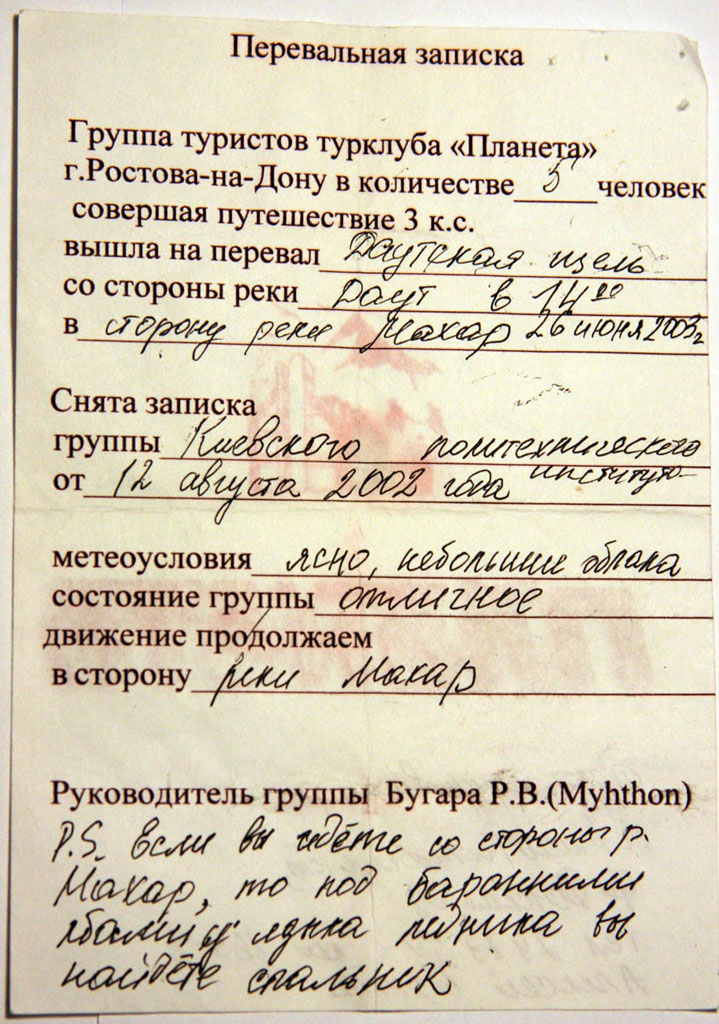 Перевальная записка
Группа туристов турклуба «Планета»
г.Ростова-на-Дону в количестве 5 человек
совершая путешествие 3 к.с.
вышла на перевал Даутская щель
со стороны реки Даут в 14⁰⁰
в сторону реки Махар 26 июня 2003г
Снята записка
группы Киевского политехнического
института
от 12 августа 2002 года
метеоусловия ясно, небольшие облака
состояние группы отличное
движение продолжаем
в сторону реки Махар
Руководитель группы Бугара Р.В.(Myhthon)
P.S. Если вы идёте со стороны р.
Махар, то под бараньими
лбами у языка ледника вы
найдёте спальник